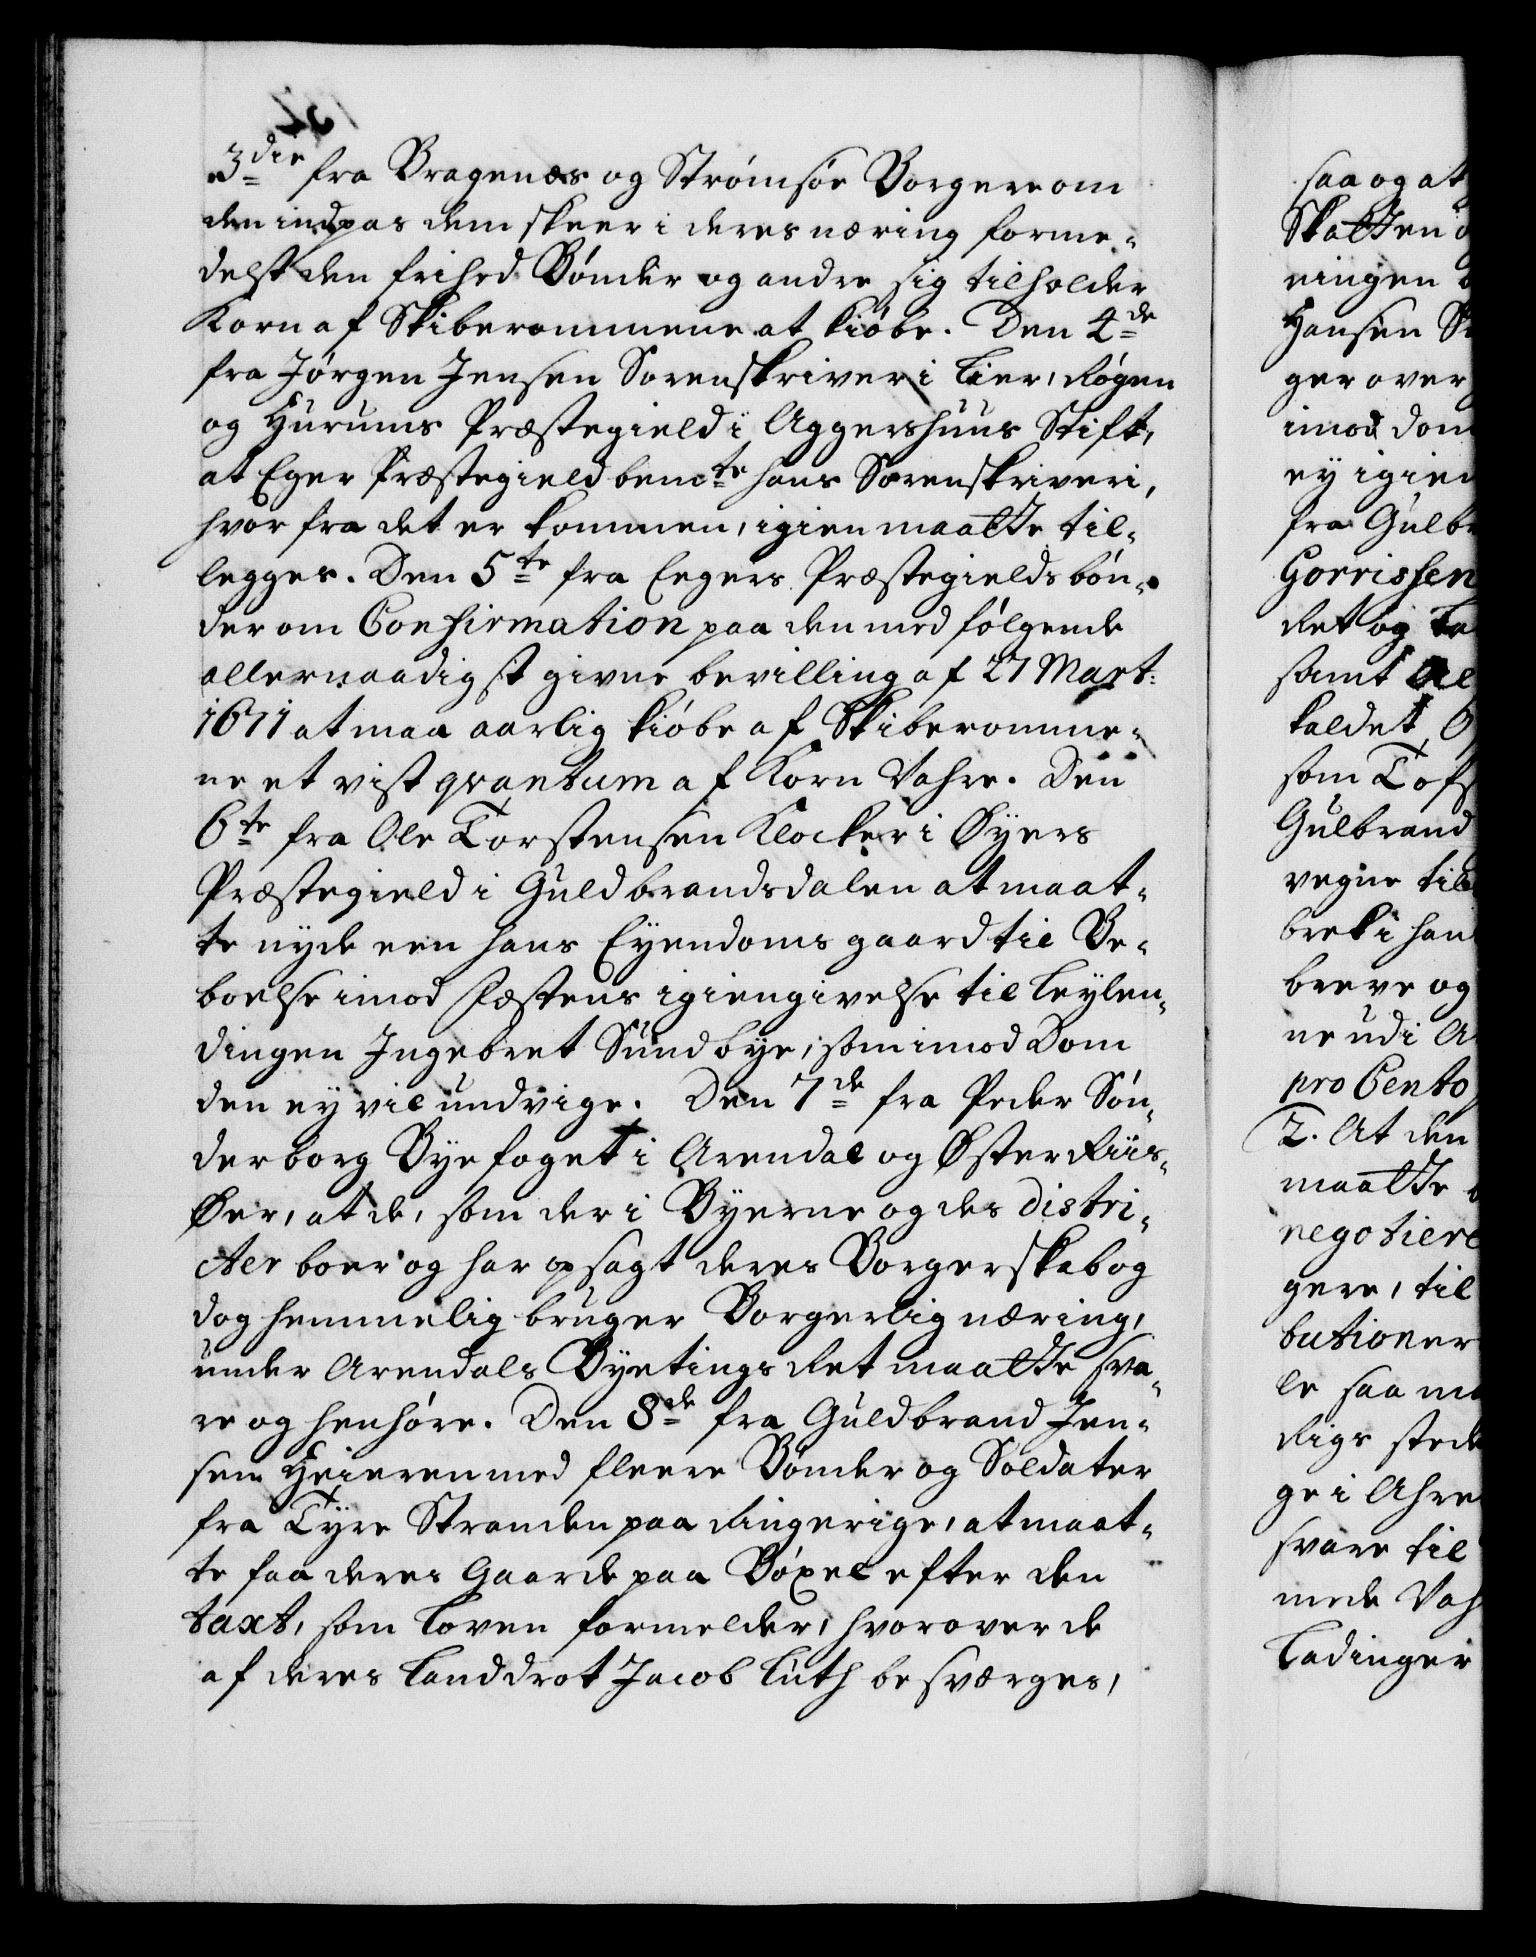 3die fra Bragenæs og Strømsöe Borgere om
den indpas dem skeer i deres næring forme-
delst den frihed Bönder og andre sig tilholder
Korn af Skiberommene at kiöbe. Den 4de
fra Jörgen Jensen Sorenskriver i Lier, Rögen
og Hurums Præstegield i Aggershuus Stift,
at Eger Præstegield bemte hans Sorenskriveri,
hvor fra det er kommen, igien maatte til-
legges. Den 5te fra Egers Præstegields bön-
der om Confirmation paa den med fölgende
allernaadigst givne bevilling af 27 Mart:
1671 at maa aarlig kiöbe af Skiberomme-
ne et vist qvantum af Korn Vahre. Den
6te fra Ole Torstensen Klocker i Öyers
Præstegield i Guldbrandsdalen at maat-
te nyde een hans Eyendoms gaard til Be-
boelse imod fæstens igiengivelse til Leylen-
dingen Ingebret Sundbye, som imod Dom
den ey vil undvige. Den 7de fra Peder Sön-
derborg Byefoget i Arendal og Øster Riis-
Øer, at de, som der i Byerne og des distri-
cter boer og har opsagt deres Borgerskab og
dog hemmelig bruger Borgerlig næring,
under Arendals Byetings Ret maatte sva-
re og henhöre. Den 8de fra Guldbrand Jen-
sen Heieren med fleere Bönder og Soldater
fra Tyre Stranden paa Ringerige, at maat-
te faa deres Gaarde paa Böxel efter den
taxt, som Loven formelder, hvorover de
af deres Landdrot Jacob Luth besværges,
saa og at
Skatten
ningen
Hansen
ger over
imod dom
ey igien
fra Gulbr
Gorrissen
det og La
samt
kaldet
som Tofs
Gulbrand
vegne til
brek i han
breve og
ne udi A
pro Cento
2. At den
maatte
negotiere
gere, til
butioner
le saa ma
digs stede
ge i Ahre
svare til
mede Vah
Ladinger